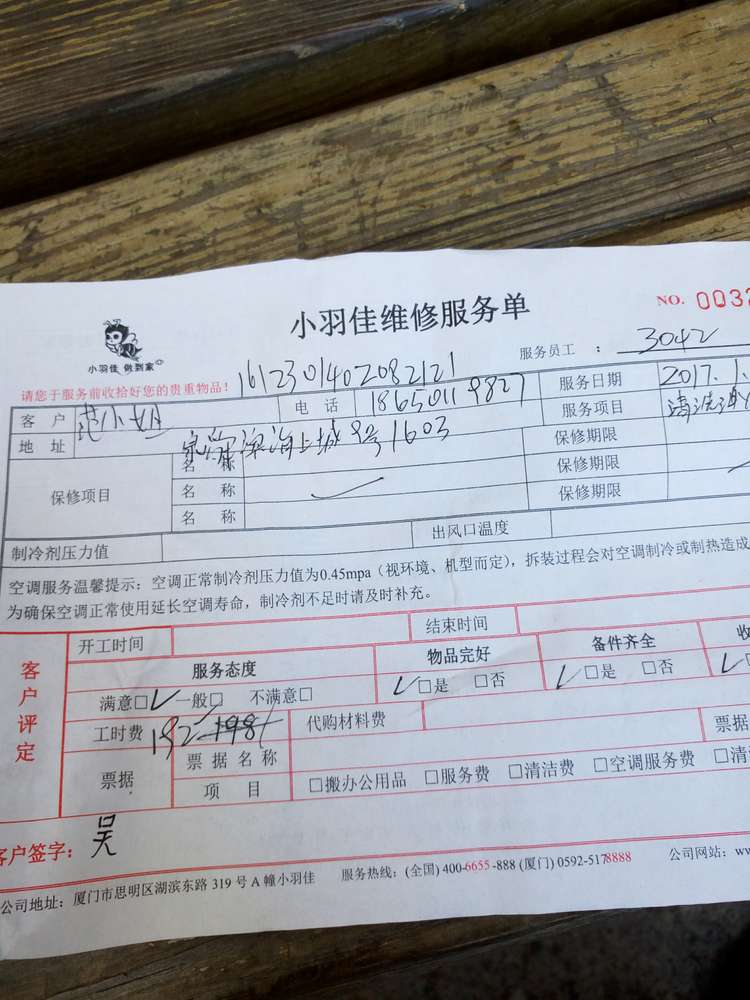 小羽佳维修服务单
NO. 0032
小羽佳 做到家
服务员工 : 3042
请您于服务前收拾好您的贵重物品!
1612301402082121
客 户 范小姐 电 话 18650119827 服务日期 2017.1.
地 址 深海上城9号1603 服务项目 清洗
保修项目 名 称 保修期限
名 称 保修期限
名 称 保修期限
制冷剂压力值 出风口温度
空调服务温馨提示：空调正常制冷剂压力值为0.45mpa（视环境、机型而定），拆装过程会对空调制冷或制热造成
为确保空调正常使用延长空调寿命，制冷剂不足时请及时补充。
客户评定 开工时间 结束时间
服务态度 物品完好 备件齐全 收
满意□✓ 一般□ 不满意□ ✓□是 □否 ✓□是 □否 ✓
工时费 192 198 代购材料费 票据
票据 票 据 名 称
项 目 □搬办公用品 □服务费 □清洁费 □空调服务费 □清
客户签字: 吴
公司地址: 厦门市思明区湖滨东路 319 号 A 幢小羽佳 服务热线: (全国) 400-6655-888 (厦门) 0592-5178888 公司网站: ww